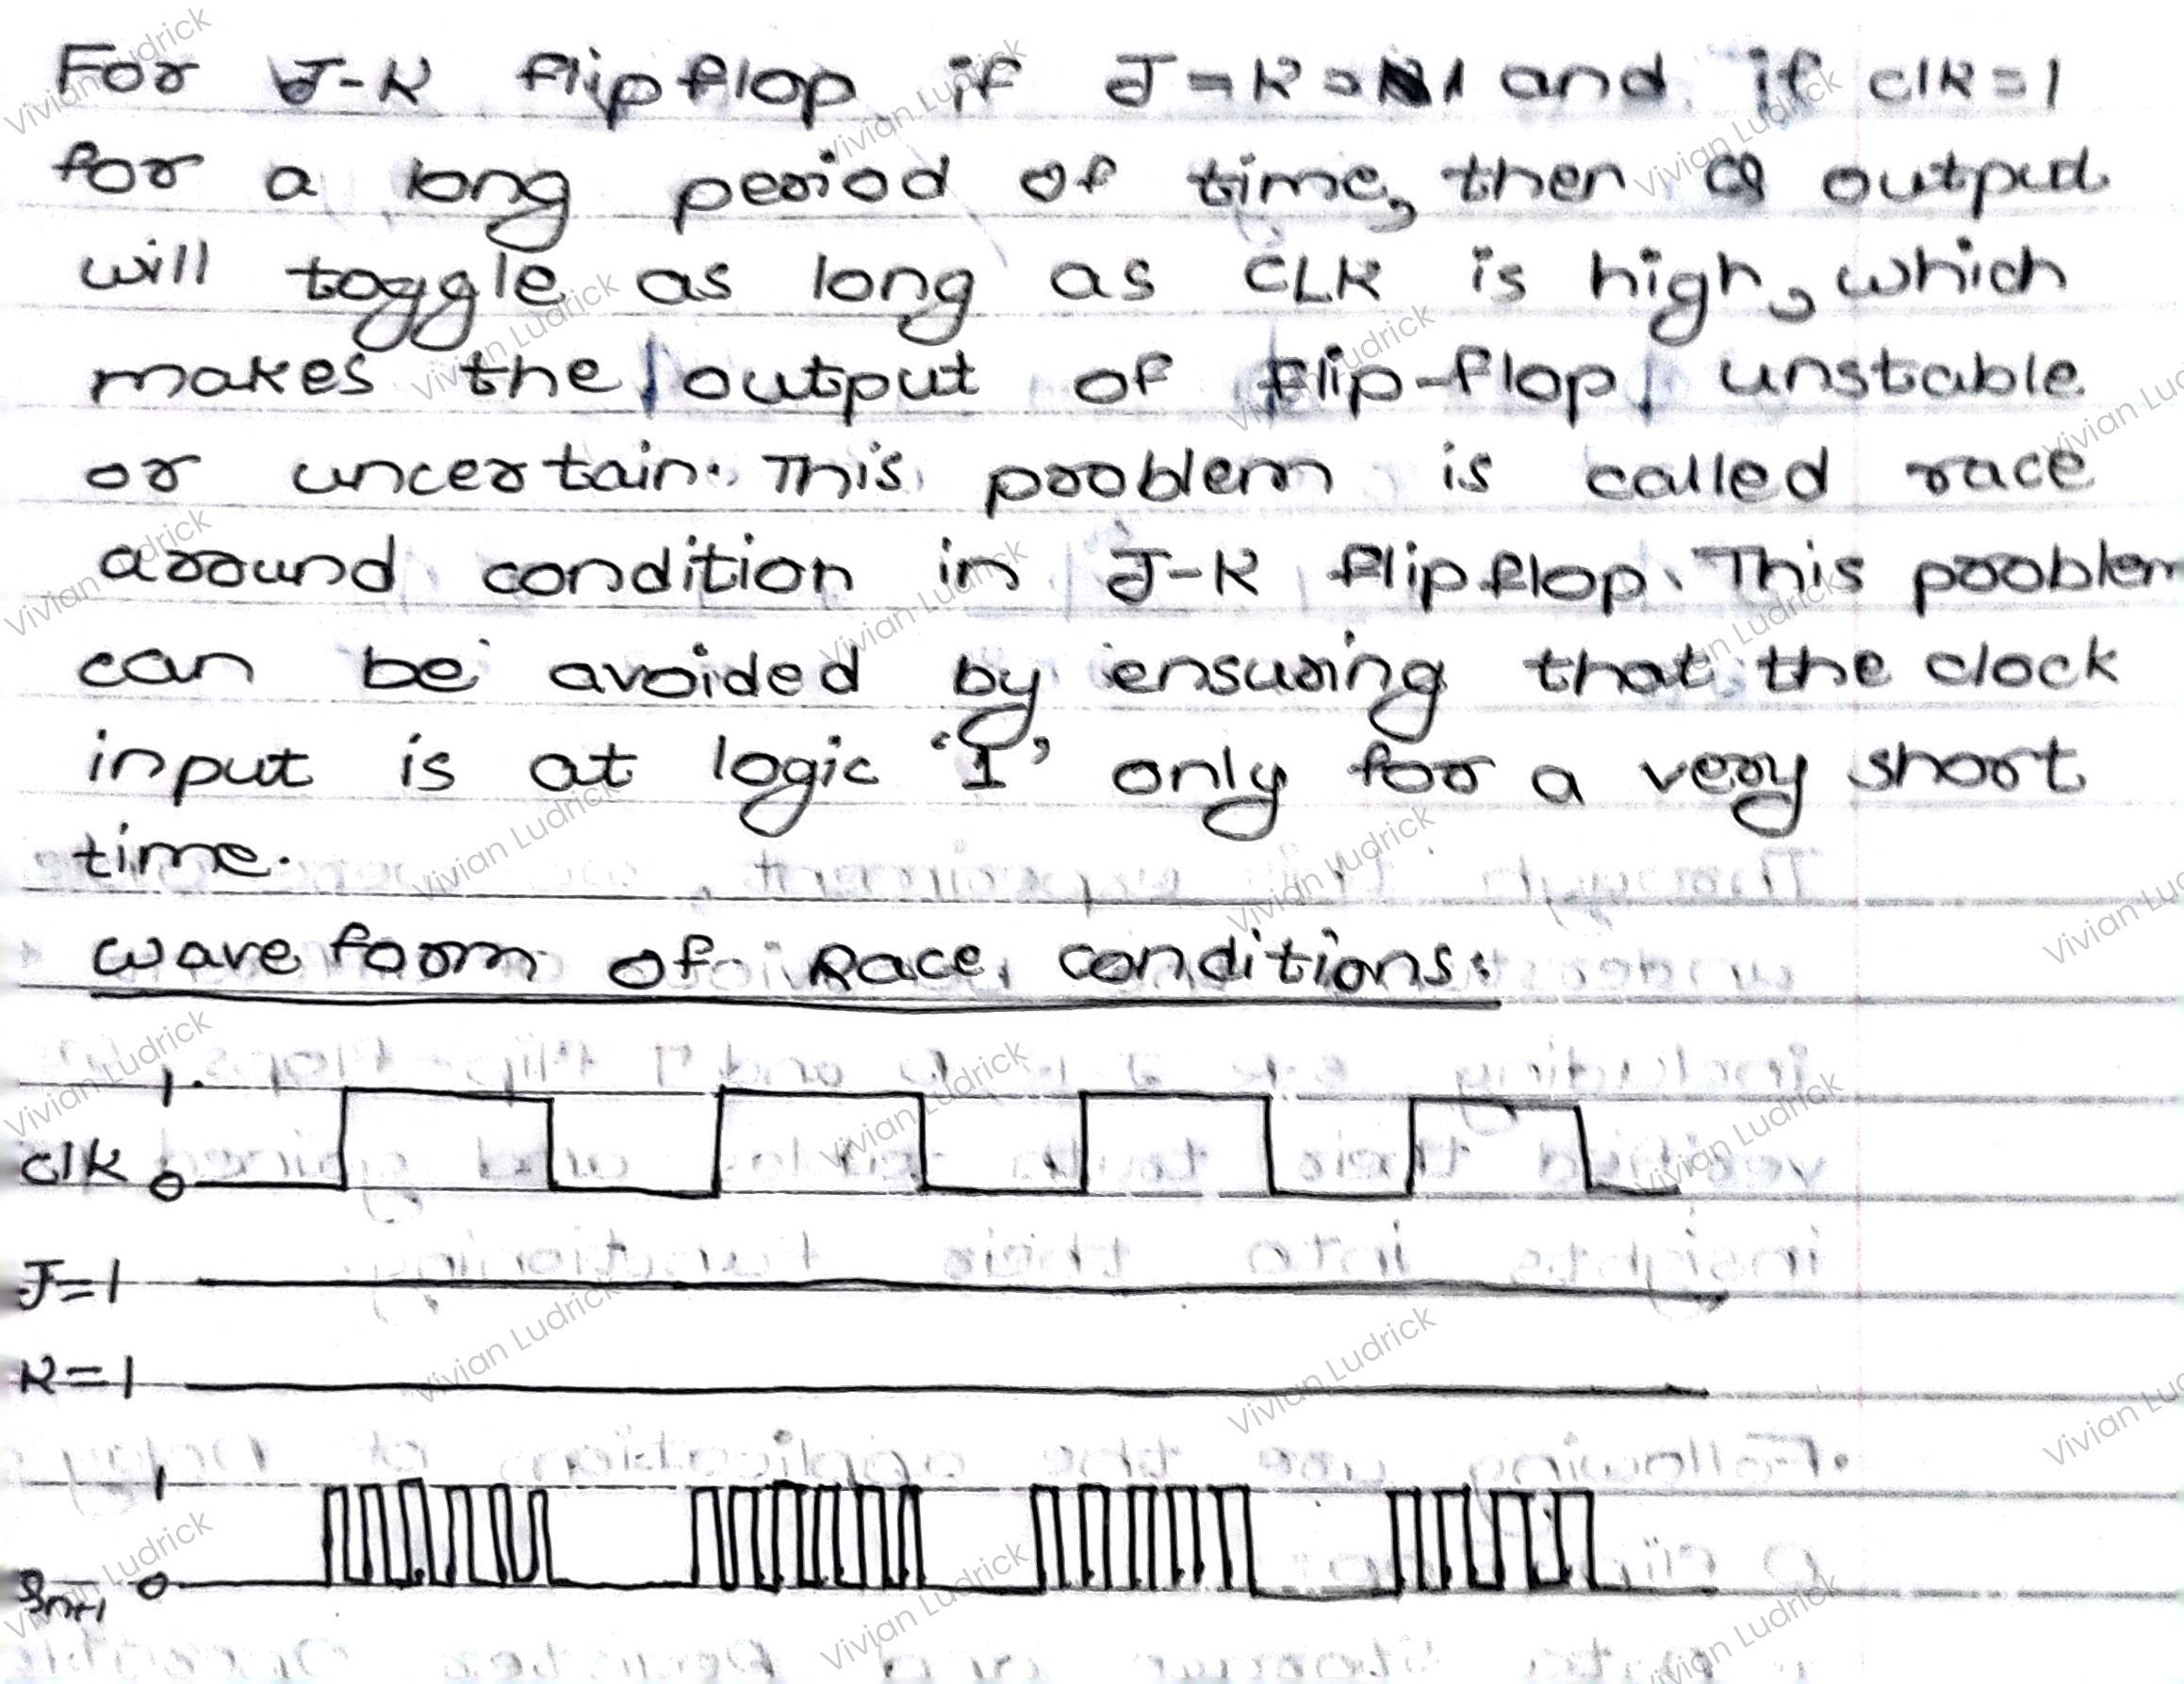 For J-K flip flop if J=K=1 and if clk=1
for a long period of time, then Q output
will toggle as long as CLK is high, which
makes the output of flip-flop unstable
or uncertain. This problem is called race
around condition in J-K flipflop. This problem
can be avoided by ensuring that the clock
input is at logic '1' only for a very short
time.
wave form of Race conditions:
1
clk 0
J=1
K=1
1
Qn+1 0
Vivian Ludrick